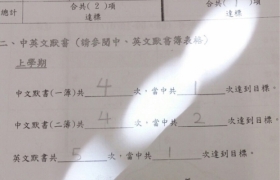 總計 合共( 2 )項 合共( 1 )項
達標 達標
二、中英文默書 (請參閱中、英文默書簿表格)
上學期
中文默書(一簿)共 4 次,當中共 1 次達到目標。
中文默書(二簿)共 4 次,當中共 2 次達到目標。
英文默書共 5 次,當中共 1 次達到目標。